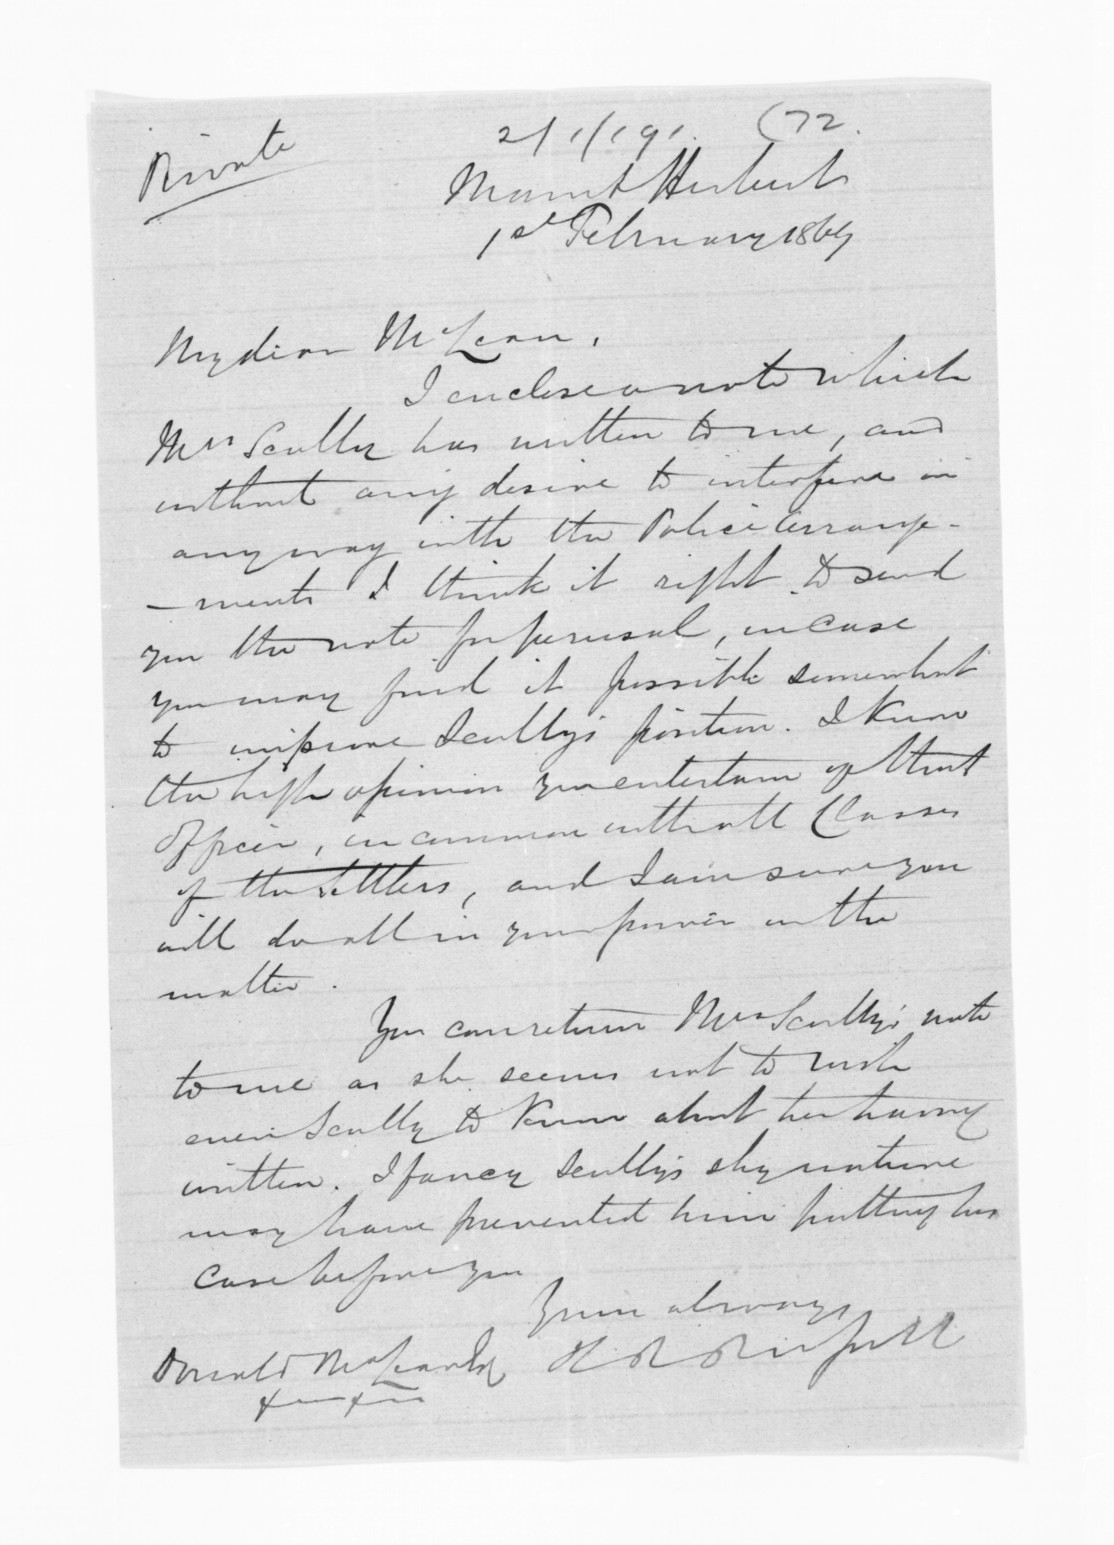 Private
21/1/191. (72.
Mount Herbert
1st February 1869
My dear McLean,
I enclose a note which
Mrs Scully has written to me, and
without any desire to interfere in
any way with the Police Arrange-
-ments I think it right to send
you the note for perusal, in case
you may find it possible somewhat
to improve Scully's position. I know
the high opinion you entertain of that
Officer, in common with all Classes
of the Settlers, and I am sure you
will do all in your power in the
matter.
You can return Mrs Scully's note
to me as she seems not to wish
even Scully to know about her having
written. I fancy Scully's shy nature
may have prevented him putting his
case before you
Yours always
H R Russell
Donald McLean Esq